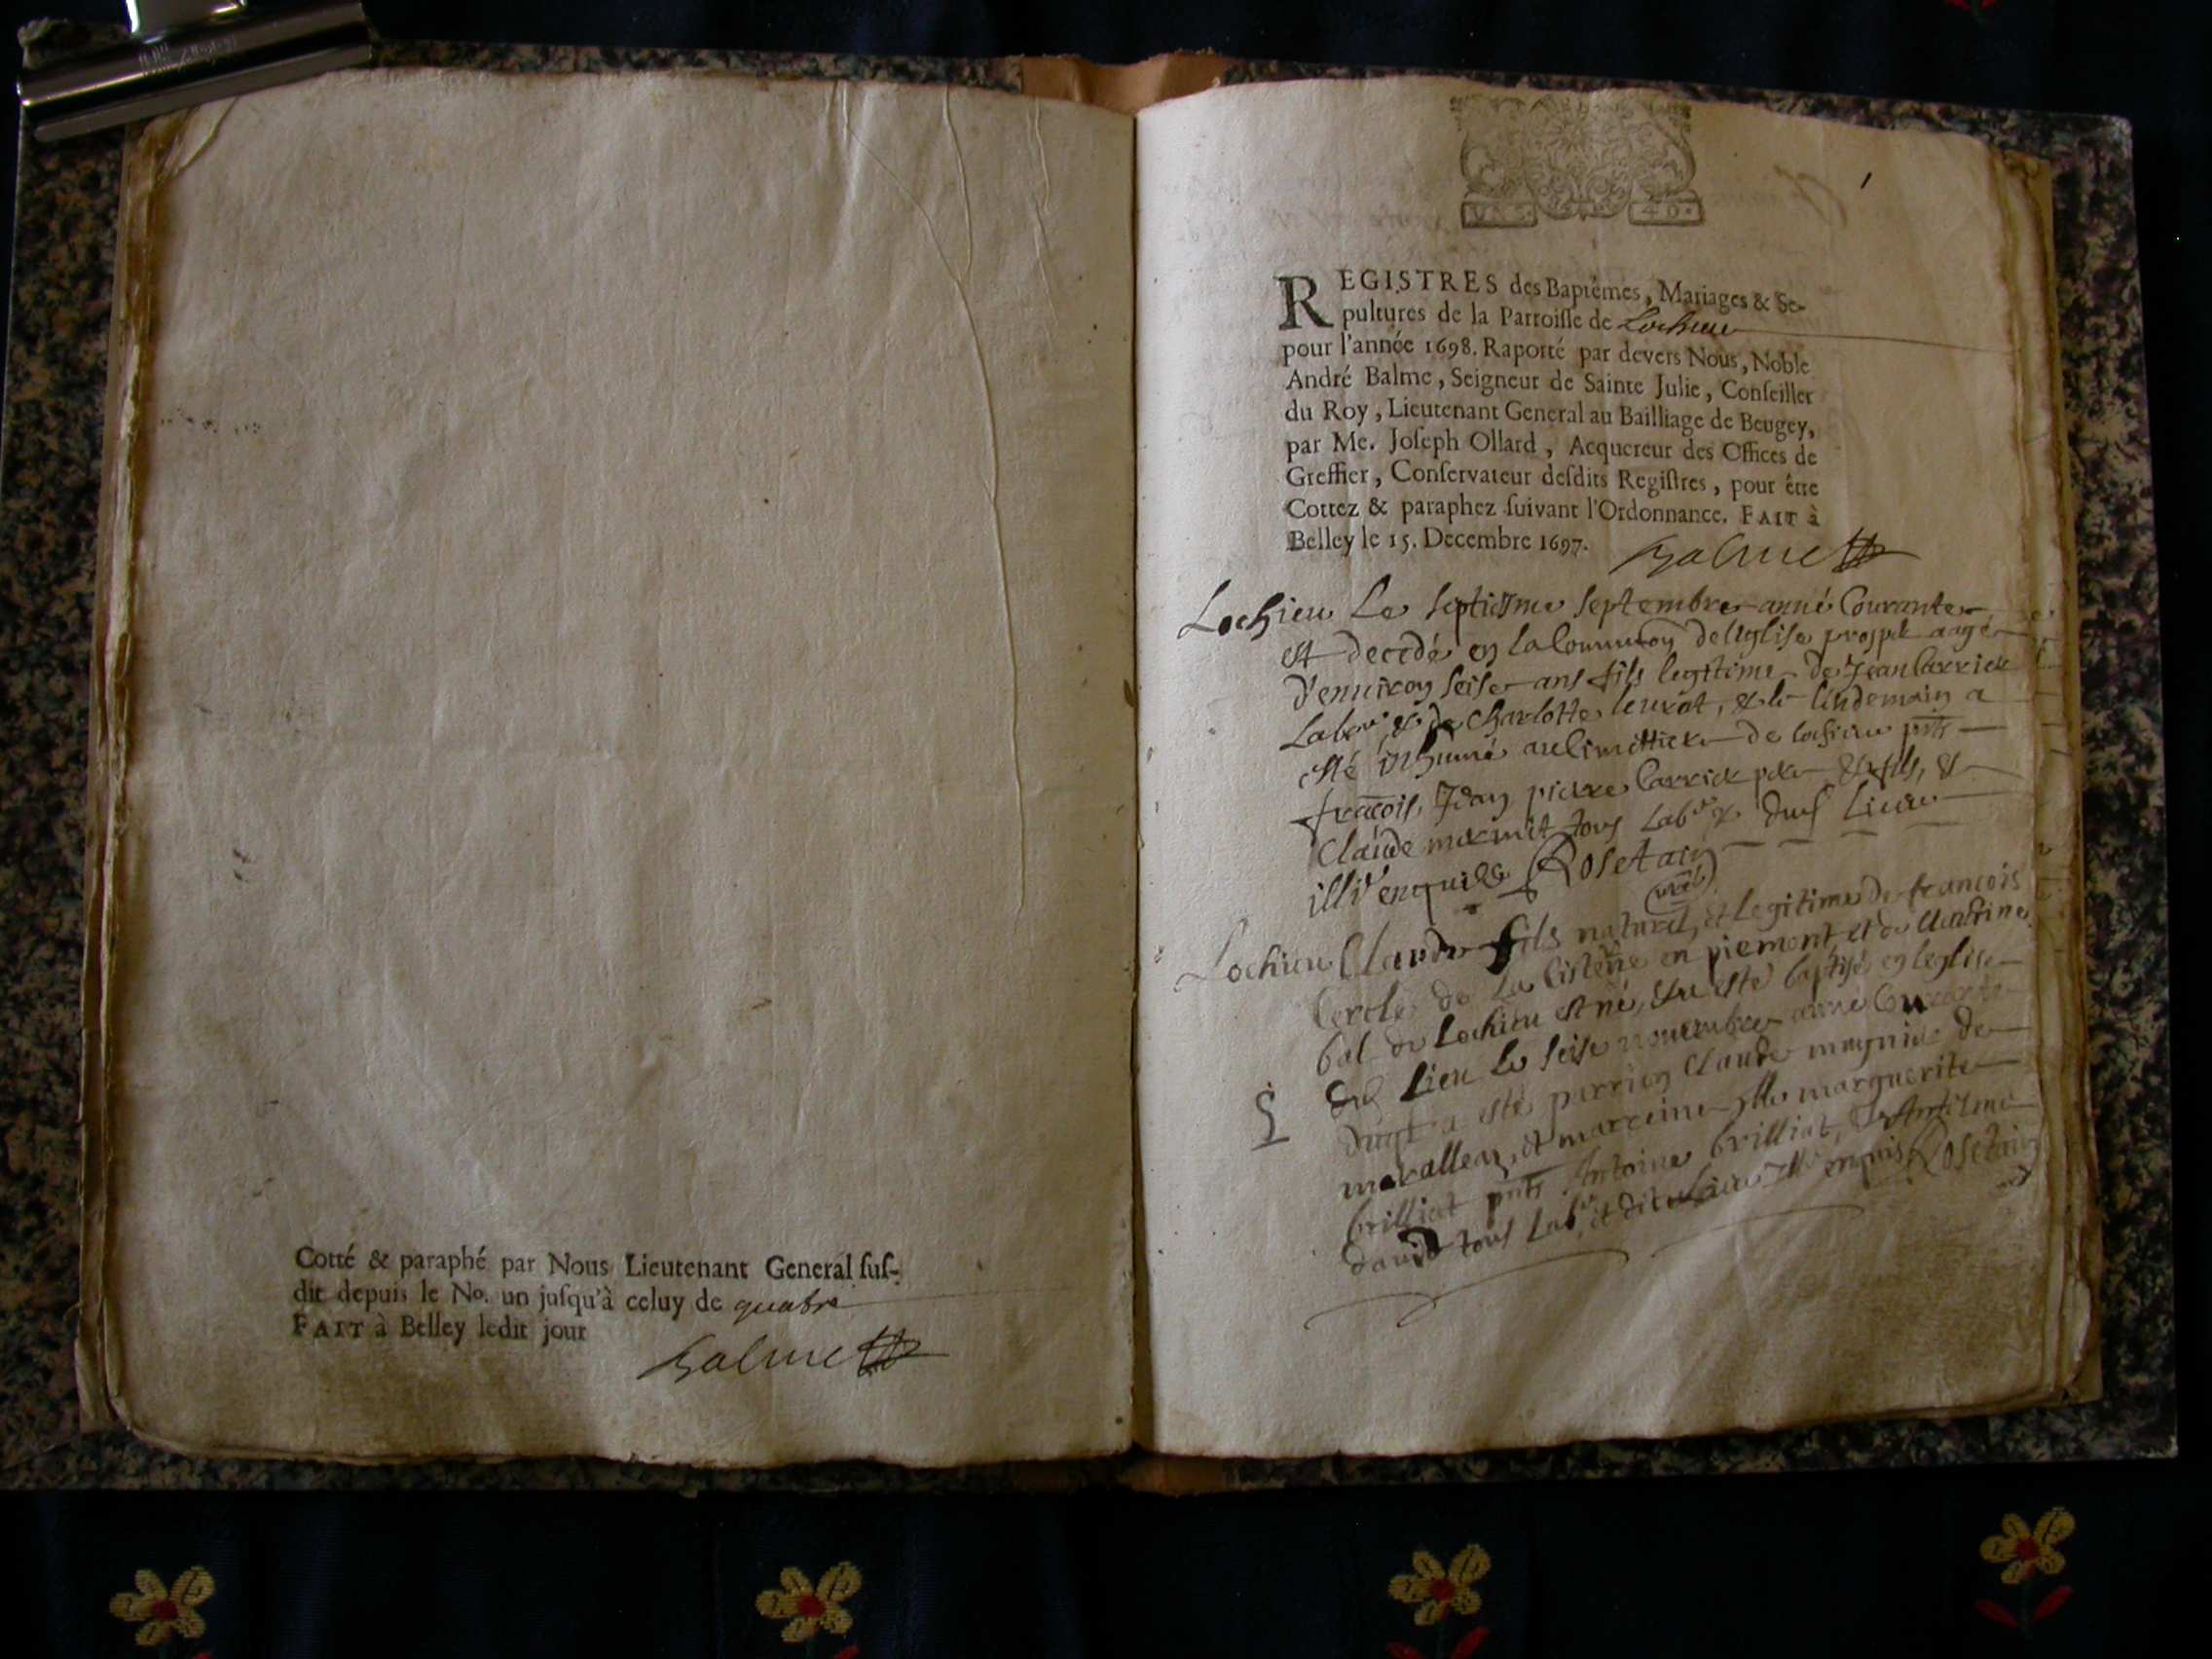 Cotté & paraphé par Nous Lieutenant General suſ-
dit depuis le No. un juſqu'à celuy de quatre
FAIT à Belley ledit jour
Balme
1
REGISTRES des Baptêmes, Mariages & Se-
pultures de la Parroiſſe de Lochieu
pour l'année 1698. Raporté par devers Nous, Noble
André Balme, Seigneur de Sainte Julie, Conſeiller
du Roy, Lieutenant General au Bailliage de Beugey,
par Me. Joſeph Ollard, Acquereur des Offices de
Greffier, Conſervateur deſdits Regiſtres, pour être
Cottez & paraphez ſuivant l'Ordonnance. FAIT à
Belley le 15. Decembre 1697.
Balme
Lochieu Le septiesme septembre anné Courante
est decedé en la Commuion de leglise aagé
d'enuiron seise ans fils legitime de Jean Carrier
Labr & de Charlotte & le lendemain a
esté inhumé au de lochieu pnts
francois, Jean pierre Carrier pere & fils, &
Claude tous Labr & dud Lieu
enquis Rosetain
Lochieu Claude fils naturel, et legitime de francois
Cercle de La en piemont et de Claudine
bal de Lochieu est né, & a esté baptisé en leglise
dud Lieu le seise nouembre anné Courante
duqt a esté parrien Claude de
et marreine marguerite
brilliat pnts Antoine brilliat, & Antelme
dauid tous Labr et dud lieu enquis Rosetain